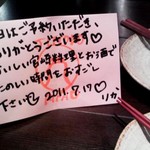 日はご予約いただき、
ありがとうございます♡
おいしい宮崎料理とお酒で
たのしい時間をおすごし
下さい 2011.7.17♡ りか